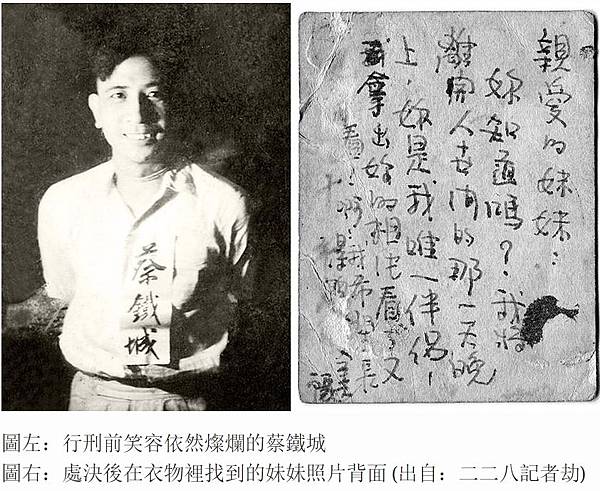 蔡鐵城
親愛的妹妹：
妳知道嗎？我將
離開人世間的那一天晚
上，妳是我唯一伴侶，
我拿出妳的相 看了又
看
圖左：行刑前笑容依然燦爛的蔡鐵城
圖右：處決後在衣物裡找到的妹妹照片背面 (出自：二二八記者劫)